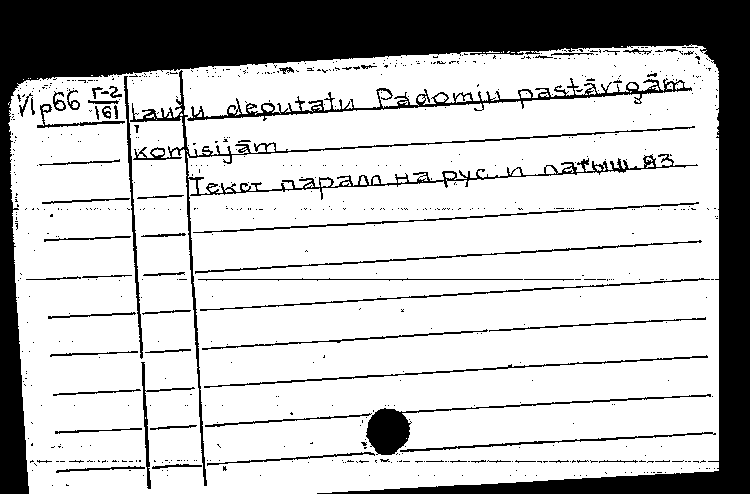 Ир66 Г-2/161 ļaužu deputatu Padomju pastāvīgām
komisijām.
Текст паралл на рус. и латыш. яз